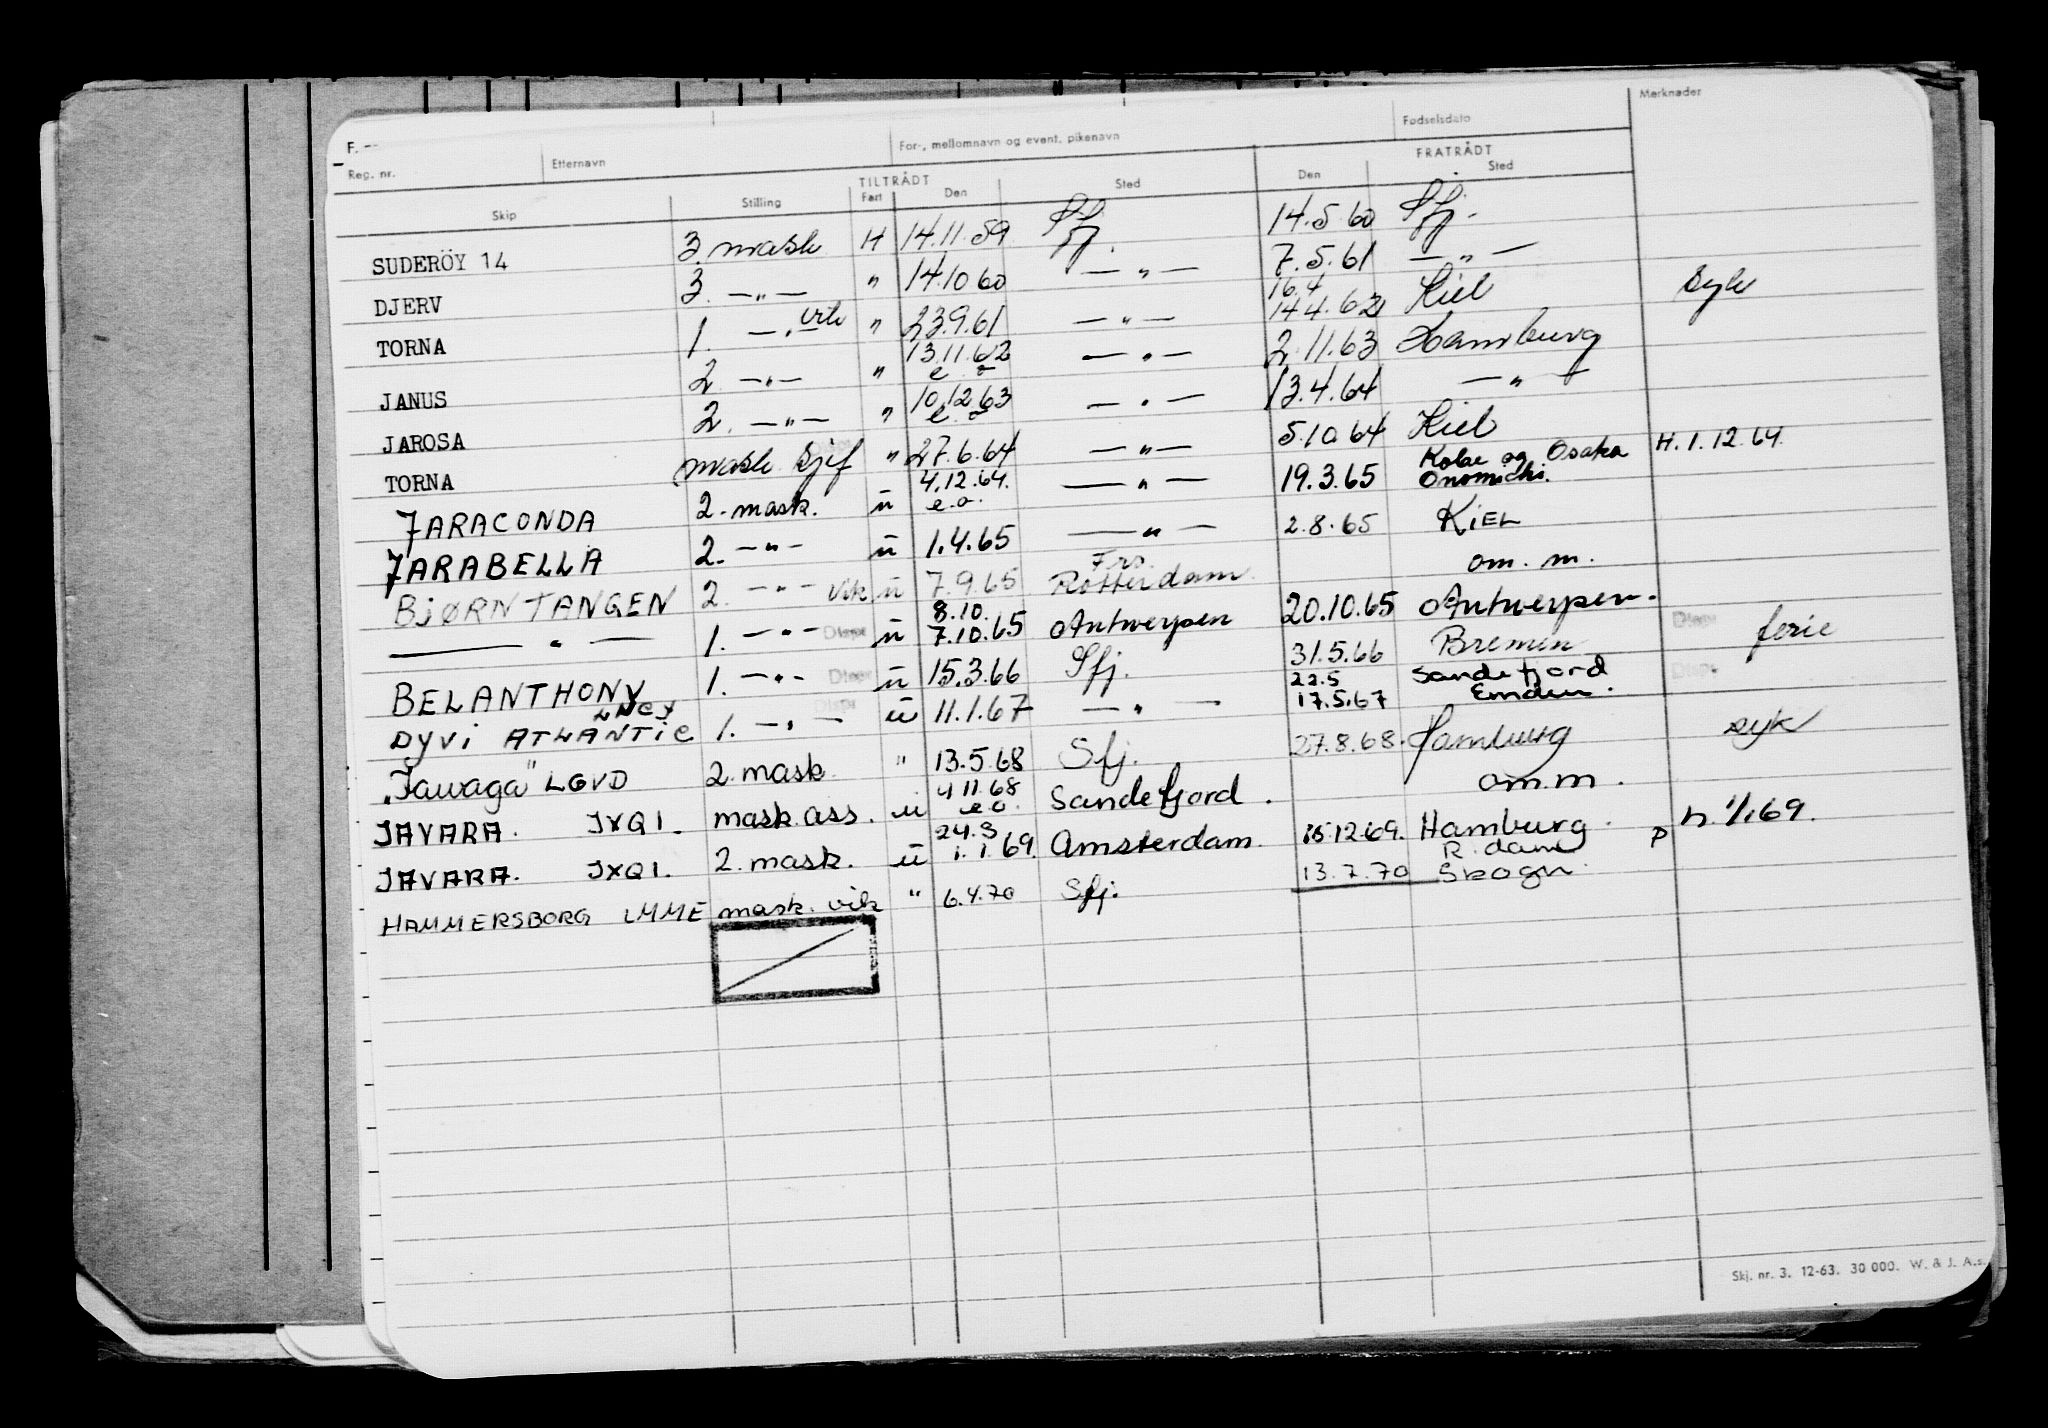 F. --
Reg. nr. Etternavn For-, mellomnavn og event. pikenavn Fødselsdato Merknader
TILTRÅDT FRATRÅDT
Skip Stilling Fart Den Sted Den Sted
SUDERÖY 14 3. mask H 14.11.59 Sfj. 14.5.60 Sfj.
DJERV 3. —"— " 14.10 60 —"— 7.5.61 —"—
TORNA 1. —"— vik " 23.9.61 —"— 16.4 14.4.62 Kiel syk
JANUS 2. —"— " 13.11.62 e.o —"— 2.11.63 Hamburg
JAROSA 2. —"— " 10.12.63 e.o —"— 13.4.64 —"—
TORNA mask sjef " 27.6.64 —"— 5.10.64 Kiel
JARACONDA 2. mask. u 4.12.64. e.o. —"— 19.3.65 Kobe og Osaka Onomichi. H. 1.12.64.
JARABELLA 2. —"— u 1.4.65 —"— 2.8.65 KiEL
BJØRN TANGEN 2. —"— Vik u 7.9.65 Fra. Rotterdam om. m.
—"— 1. —"— Disp u 8.10. 7.10.65 Antwerpen 20.10.65 Antwerpen.
BELANTHONY 1. —"— Disp u 15.3.66 Sfj. 31.5.66 Bremen Disp ferie
DYVi ATLANTIC LNCY 1. —"— Disp u 11.1.67 —"— 22.5 17.5.67 Sandefjord Emden. Disp
"Jawaga" LGVD 2. mask. " 13.5.68 Sfj. 27.8.68. Hamburg syk
JAVARA. JXQI. mask. ass. u 4.11.68 e.o. Sandefjord. om.m.
JAVARA. JXQI. 2. mask. u 24.3 1.1.69. Amsterdam. 15.12.69. Hamburg. p h. 1/1.69.
HAMMERSBORG LMME mask. vik " 6.4.70 Sfj. 13.7.70 R.dam Skogn.
Skj. nr. 3. 12-63. 30 000. W. & J. A.s.